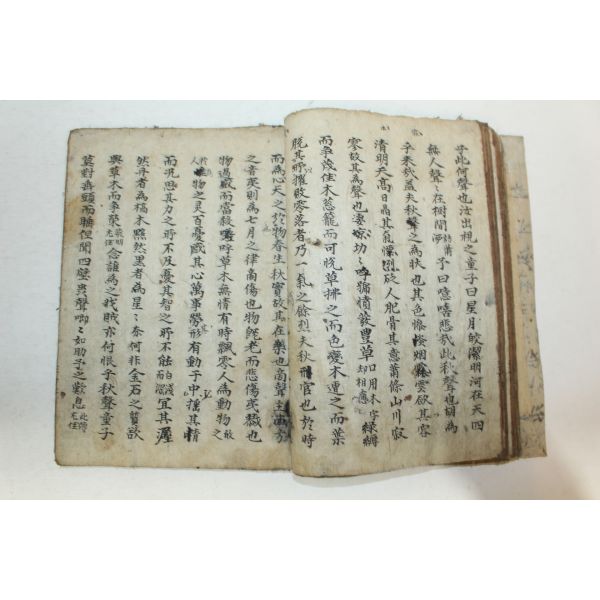 子此何聲也汝出視之童子曰星月皎潔明河在天四
無人聲〻在樹間 予曰噫嘻悲哉此秋聲也胡為
乎來哉盖夫秋聲之為狀也其色慘 烟 雲 其容
清明天高日晶其氣慄冽砭人肥骨其意蕭條山川寂
寥故其為聲也凄〻切〻呼 憤發豐草 綠縟
而爭茂佳木葱籠而可 草拂之而色變木遭之而葉
脫其所摧敗零落者乃一氣之餘烈夫秋刑官也於時
而為心天之於物春生秋實故其在樂也商聲主
之音夷則為七月之律商傷也物 老而悲傷 也
物過盛而當殺 呼草木無情有時飄零人為動物
物之灵百憂感其心萬事勞形有動于中 其情
而况思其力之所不及憂其智之所不能 宜其渥
然丹者為槁木黟然黑者為星〻奈何非金石之質欲
與草木而爭榮 念誰為之戕賊亦何恨乎秋聲童子
莫對垂頭而睡但聞四壁 聲喞〻如助予之歎息